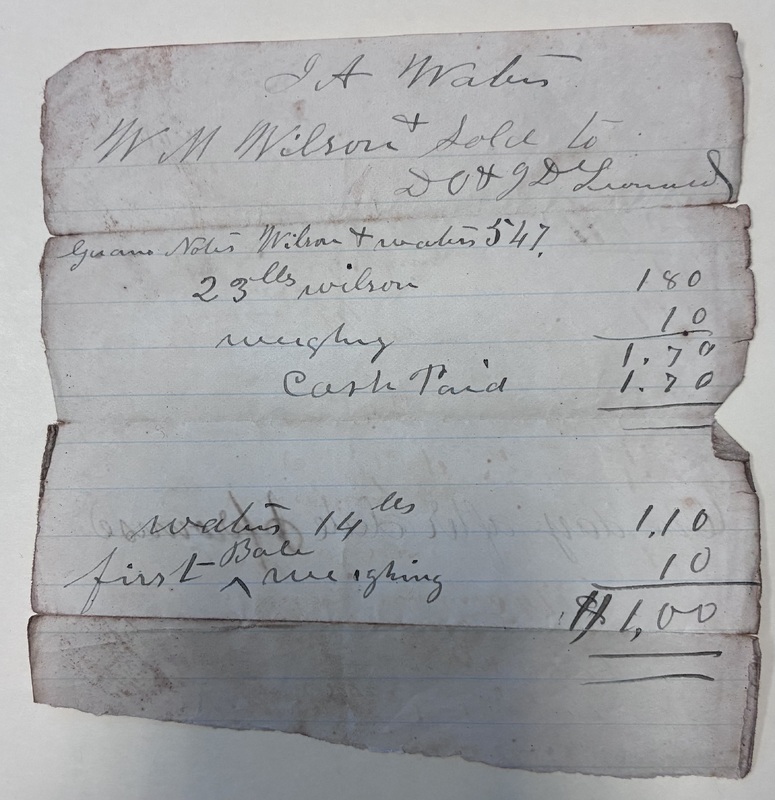 J A Waters
W M Wilson + Sold to
D O & J D Leonard
Guano Notes Wilson + waters 547.
23 lbs wilson 180
weighing 10
1.70
Cash Paid 1.70
waters 14 lbs 1,10
first Bale weighing 10
$ 1,00